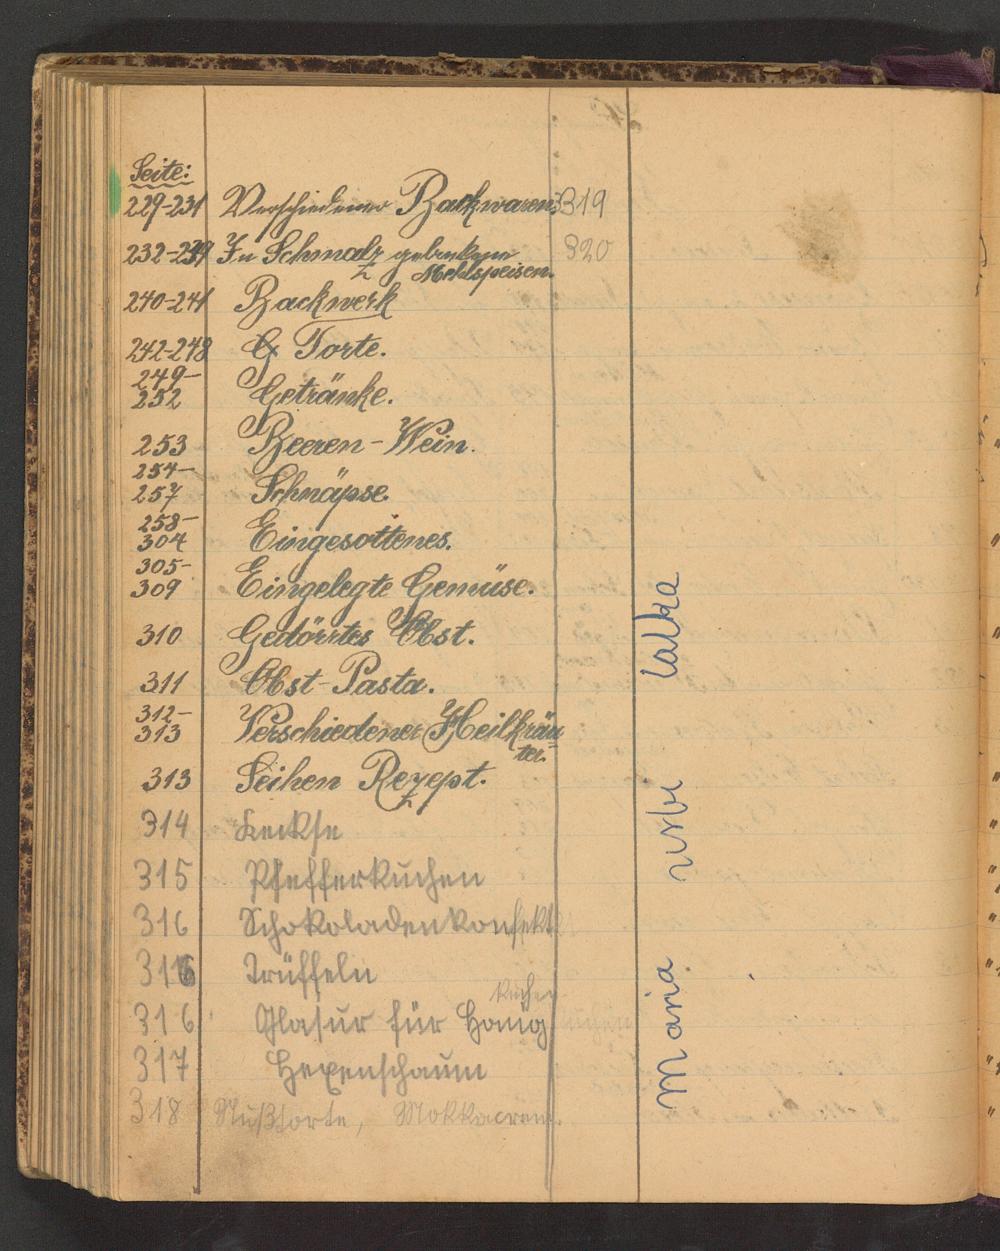 Seite:
229-231 Verschiedener Backwaren. 319
232-239 In Schmalz gebackene 320
Mehlspeisen.
240-241 Backwerk
242-248 Torte.
249-
252 Getränke.
253 Beeren-Wein.
254-
257 Schnäpse.
258-
304 Eingesottenes.
305-
309 Eingelegte Gemüse.
310 Gedörrtes Obst.
311 Obst-Pasta.
312-
313 Verschiedener Heilkräu
ter.
313 Seihen Rezept.
314 Keckse
315 Pfefferkuchen
316 Schokoladenkonfekt
316 Trüffeln
kuchen
316 Glasur für Honig
317 Hexenschaum
318 Nußtorte, Mokkacrem.
Maria